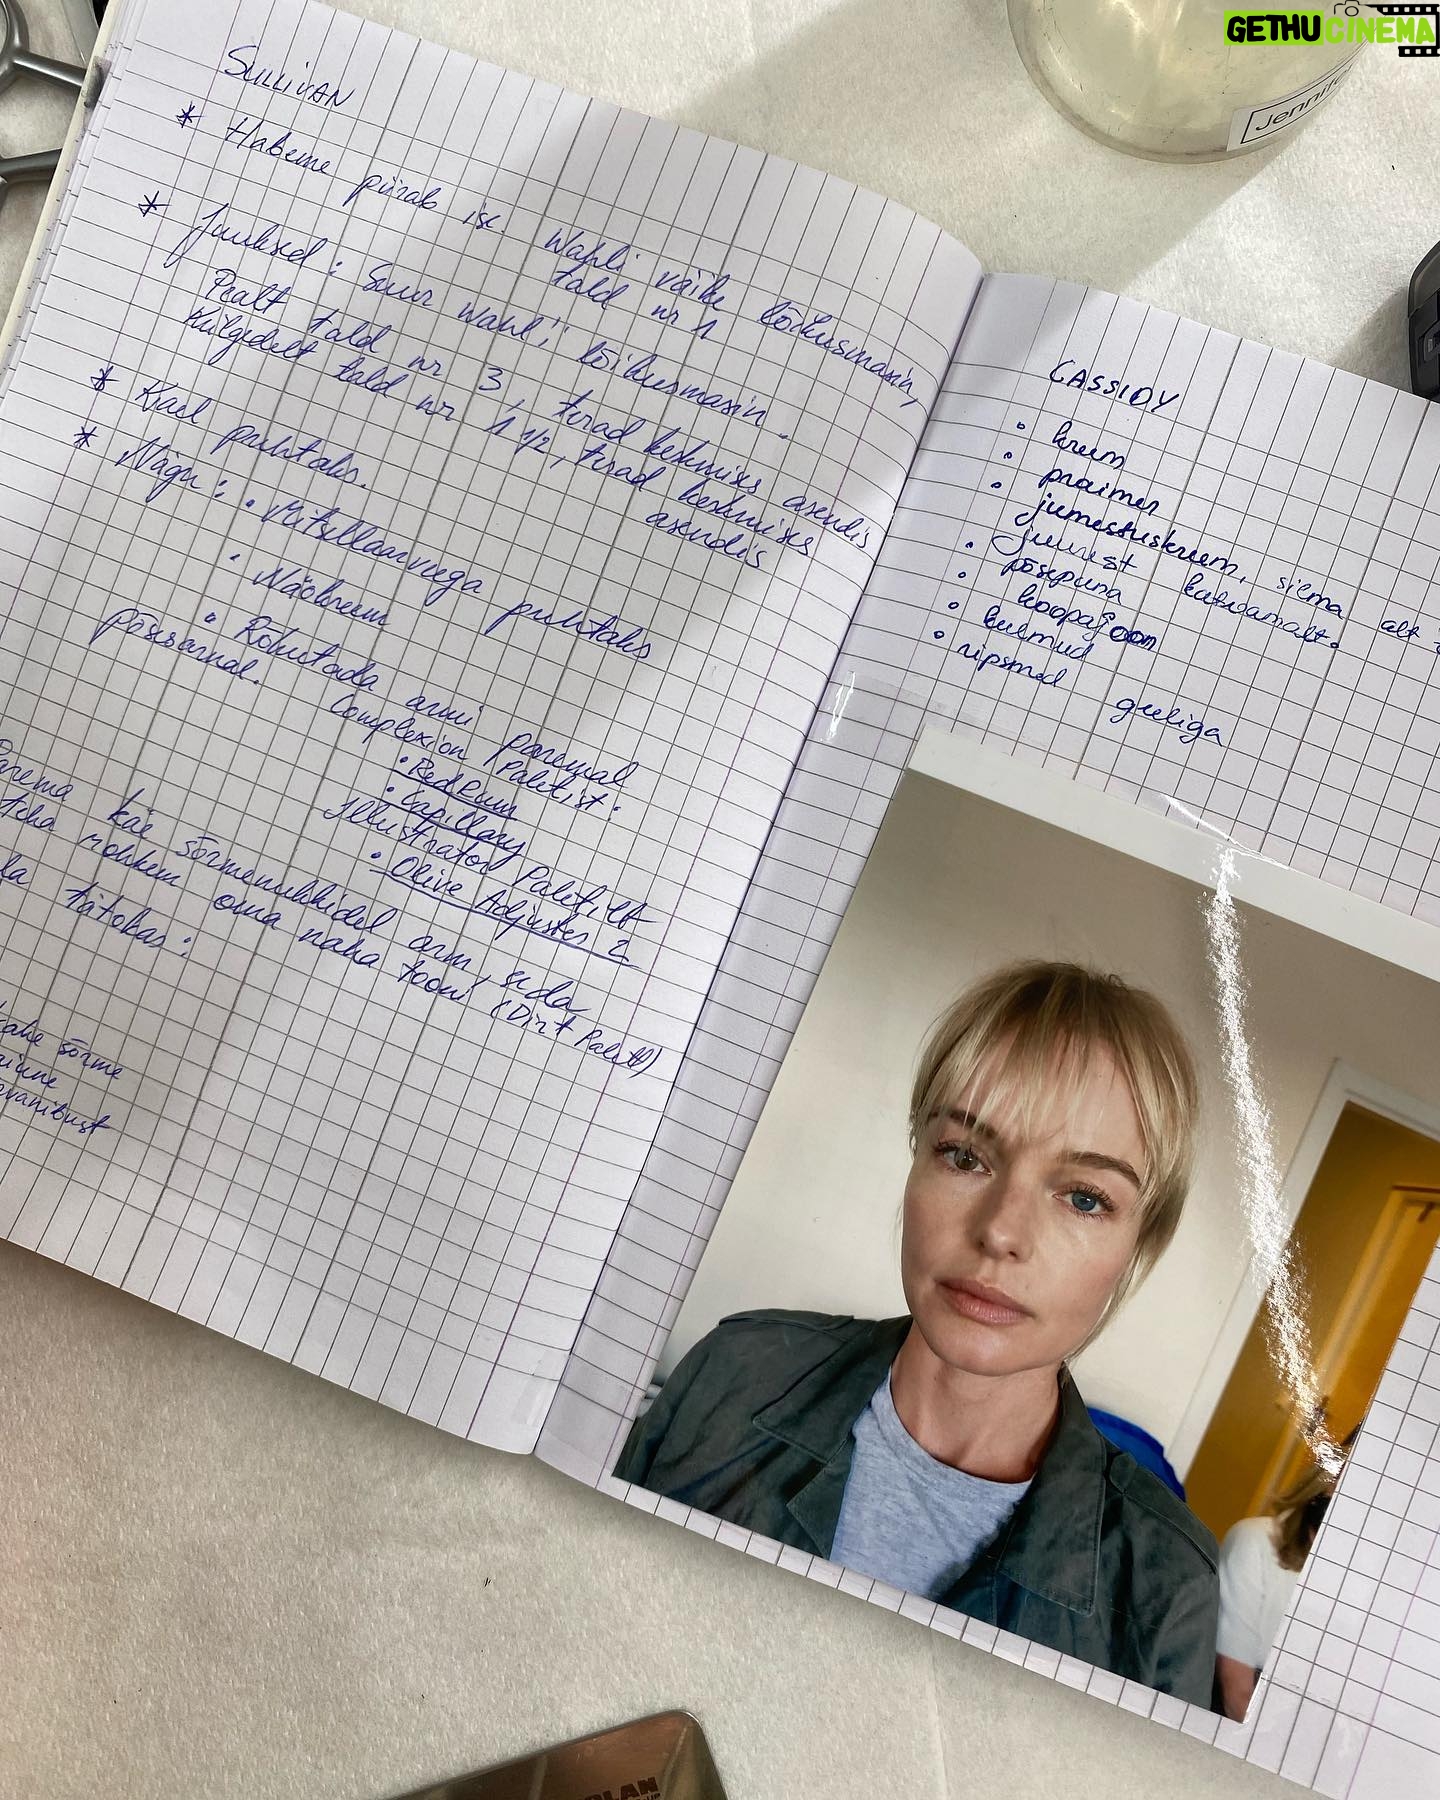 GETHU CINEMA
Jennife
SULLIVAN
* Habeme piirab ise. Wahli väike lõikusmasin,
tald nr 1
* Juuksed: Suur Wahl'i lõikusmasin.
Pealt tald nr 3, terad keskmises asendis
Külgedelt tald nr 1 1/2, terad keskmises
asendis
* Käed puhtaks.
* Nägu: • Mitsellaarveega puhtaks
• Näokreem
• Rõhutada armi paremal
põsesarnal. Complexion Paletist:
• Red
• Capillary
Illustrator Paletilt
• Olive Adjuster 2
Parema käe sõrmenukkidel arm, seda
katta rohkem oma naha tooni (Dirt Palett)
la tätokas:
kahe sõrme
CASSIDY
• kreem
• praimer
• jumestuskreem, silma alt
juurest kattvamalt.
• põsepuna
• koopajoon
• kulmud
• ripsmed geeliga